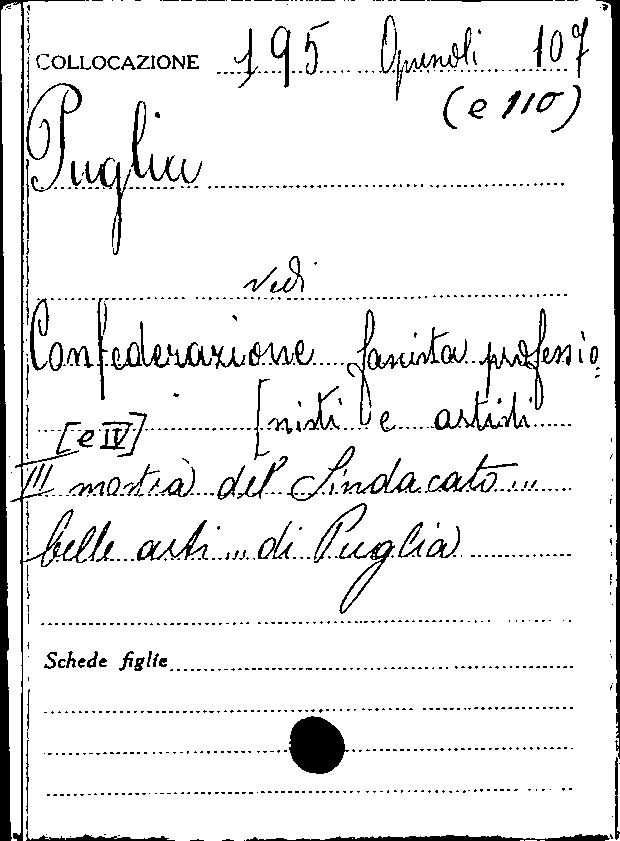 COLLOCAZIONE 195 Opuscoli 107
(e 110)
Puglia
vedi
Confederazione fascista professio
[nisti e artisti
[e IV]
III mostra del Sindacato...
belle arti... di Puglia
Schede figlie